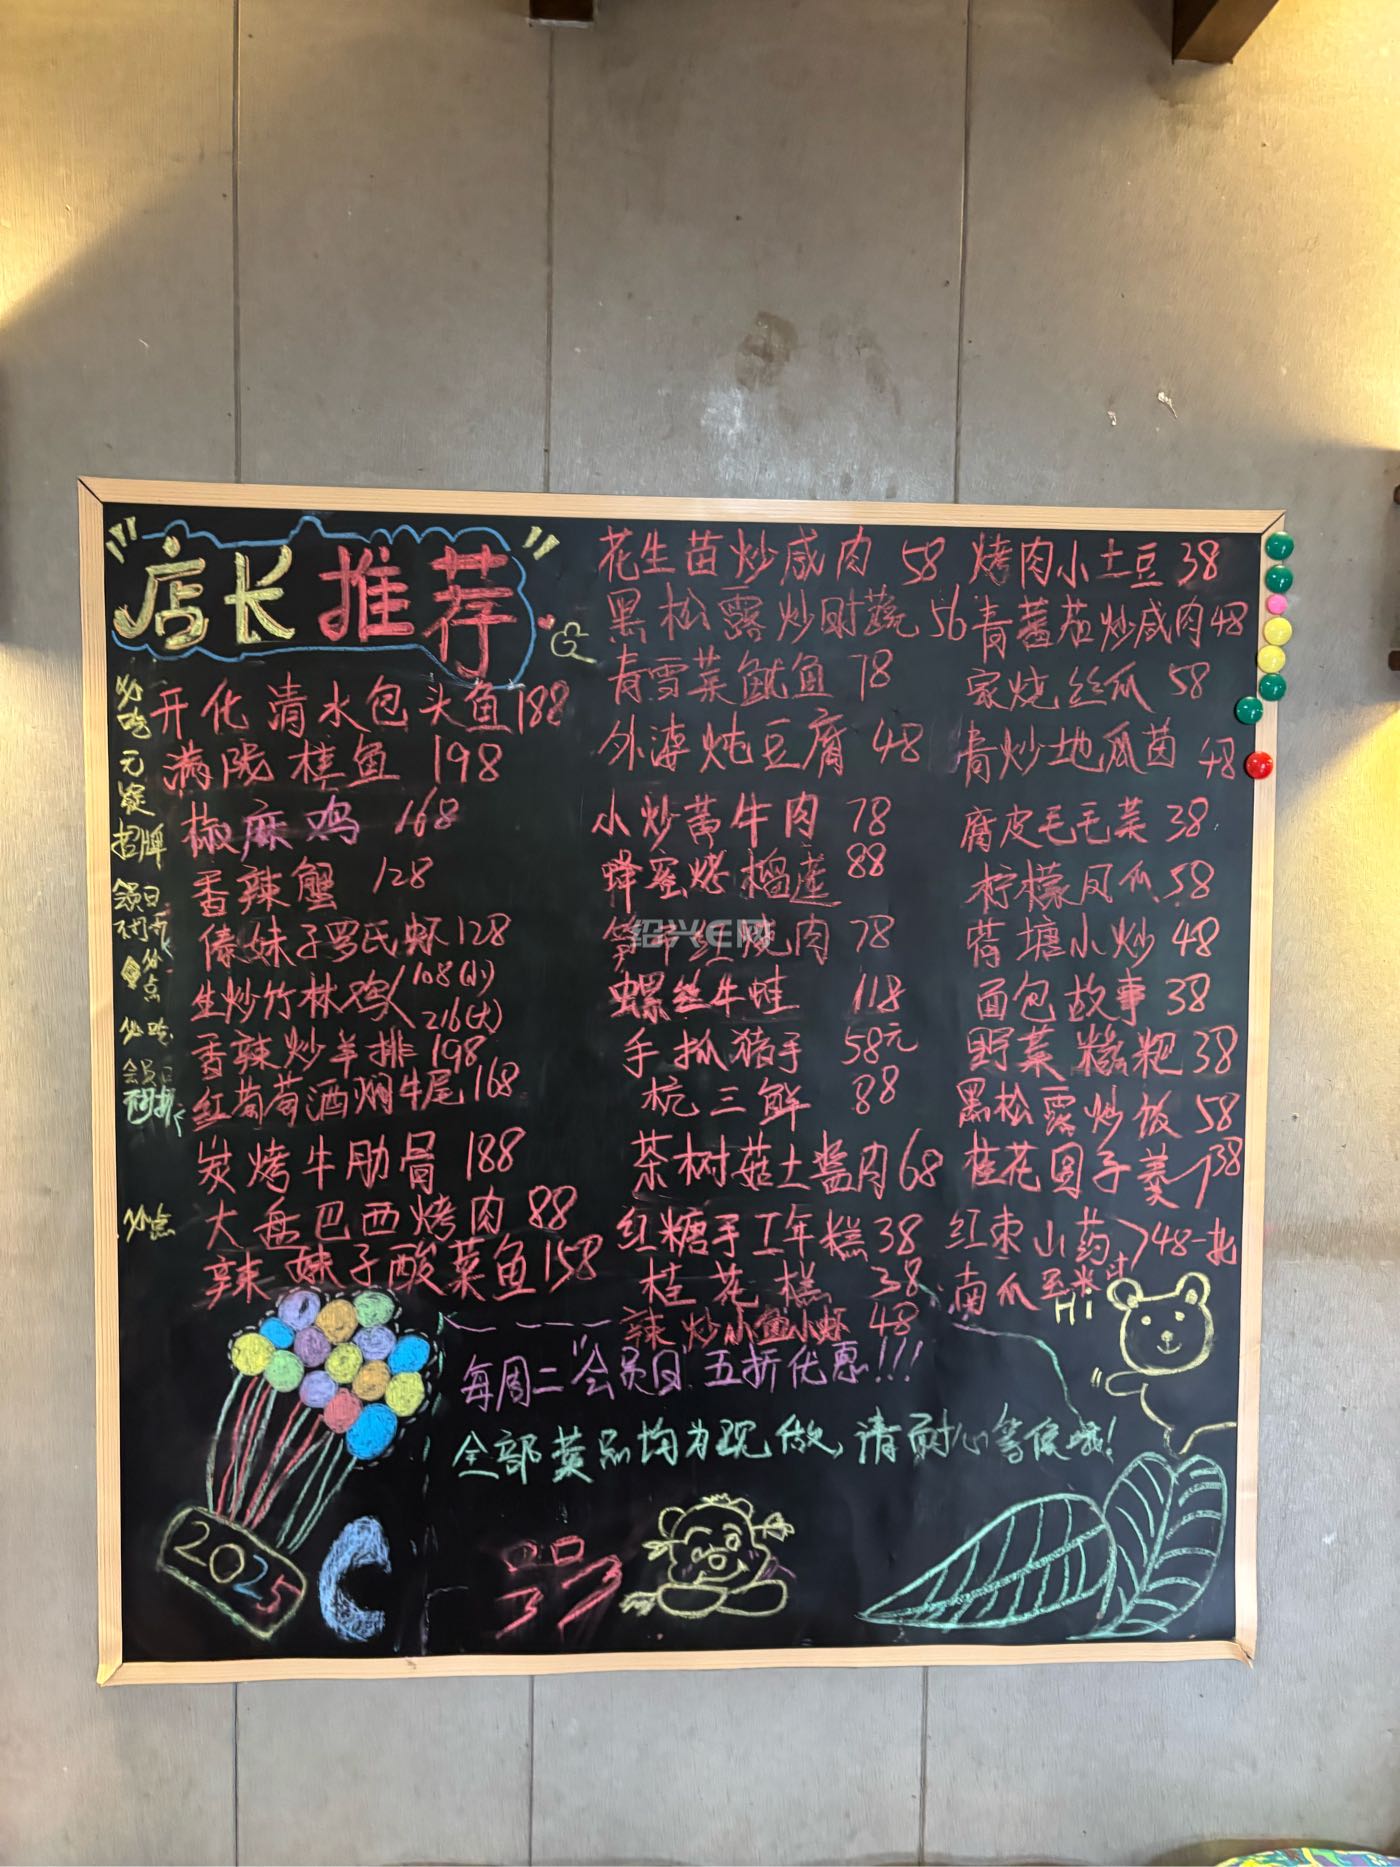 店长推荐
必吃
开化清水包头鱼188
无
满陇桂鱼 198
招牌
椒麻鸡 168
香辣蟹 128
傣妹子罗氏虾128
必点
生炒竹林鸡 108(小)
216(大)
必吃
香辣炒羊排 198
会员日
红葡萄酒焖牛尾 168
炭烤牛肋骨 188
必点
大盘巴西烤肉 88
辣妹子酸菜鱼158
花生苗炒咸肉 58
黑松露炒时蔬 56
青雪菜鱿鱼 78
外婆炖豆腐 48
小炒黄牛肉 78
蜂蜜烤榴莲 88
烧肉 78
螺丝牛蛙 118
手抓猪手 58元
杭三鲜 88
茶树菇土酱肉 68
红糖手工年糕 38
桂花糕 38
辣炒小鱼小虾 48
烤肉小土豆 38
青蕃茄炒咸肉 48
家烧丝瓜 58
青炒地瓜茵 48
腐皮毛毛菜 38
柠檬凤爪 58
荷塘小炒 48
面包故事 38
野菜糍粑 38
黑松露炒饭 58
桂花圆子羹 38
红枣山药
南瓜玉米汁 48一扎
Hi
每周二"会员日"五折优惠!!!
全部菜品均为现做,请耐心等候哦!
2025
绍兴E网